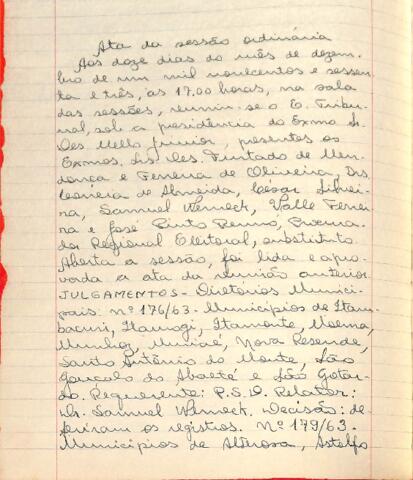 Ata da sessão ordinária
Aos doze dias do mês de dezem-
bro de um mil novecentos e sessen-
ta e três, às 17.00 horas, na sala
das sessões, reuniu-se o E. Tribu-
nal, sob a presidência do Exmo Sr.
Des. Mello Junior, presentes os
Exmos. Srs. Des. Furtado de Men-
donça e Ferreira de Oliveira, Drs.
Corrêia de Almeida, César Silvei-
ra, Samuel Werneck, Valle Ferrei-
ra e José Pinto Renó, Procura-
dor Regional Eleitoral, substituto.
Aberta a sessão, foi lida e apro-
vada a ata da reunião anterior.
JULGAMENTOS - Diretórios Munici-
pais: nº 176/63 - Municípios de Itam-
bacuri, Itamogi, Itamonte, Moema,
Munhoz, Muriaé, Nova Resende,
Santo Antônio do Monte, São
Gonçalo do Abaeté e São Gotar-
do. Requerente: P.S.D. Relator:
Dr. Samuel Werneck. Decisão: de-
feriram os registros. Nº 179/63 -
Municípios de Alterosa, Astolfo